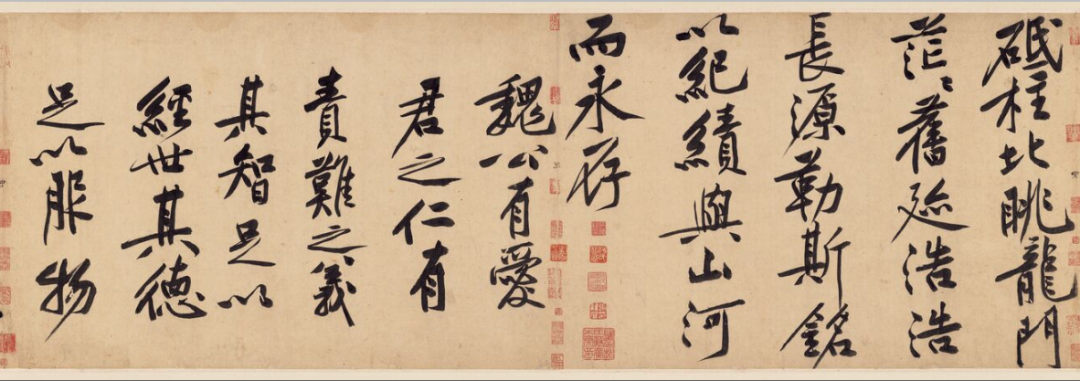 砥柱北眺龍門
茫〻舊迹浩浩
長源勒斯銘
以紀績與山河
而永存
魏公有愛
君之仁有
責難之義
其智足以
經世其德
足以服物